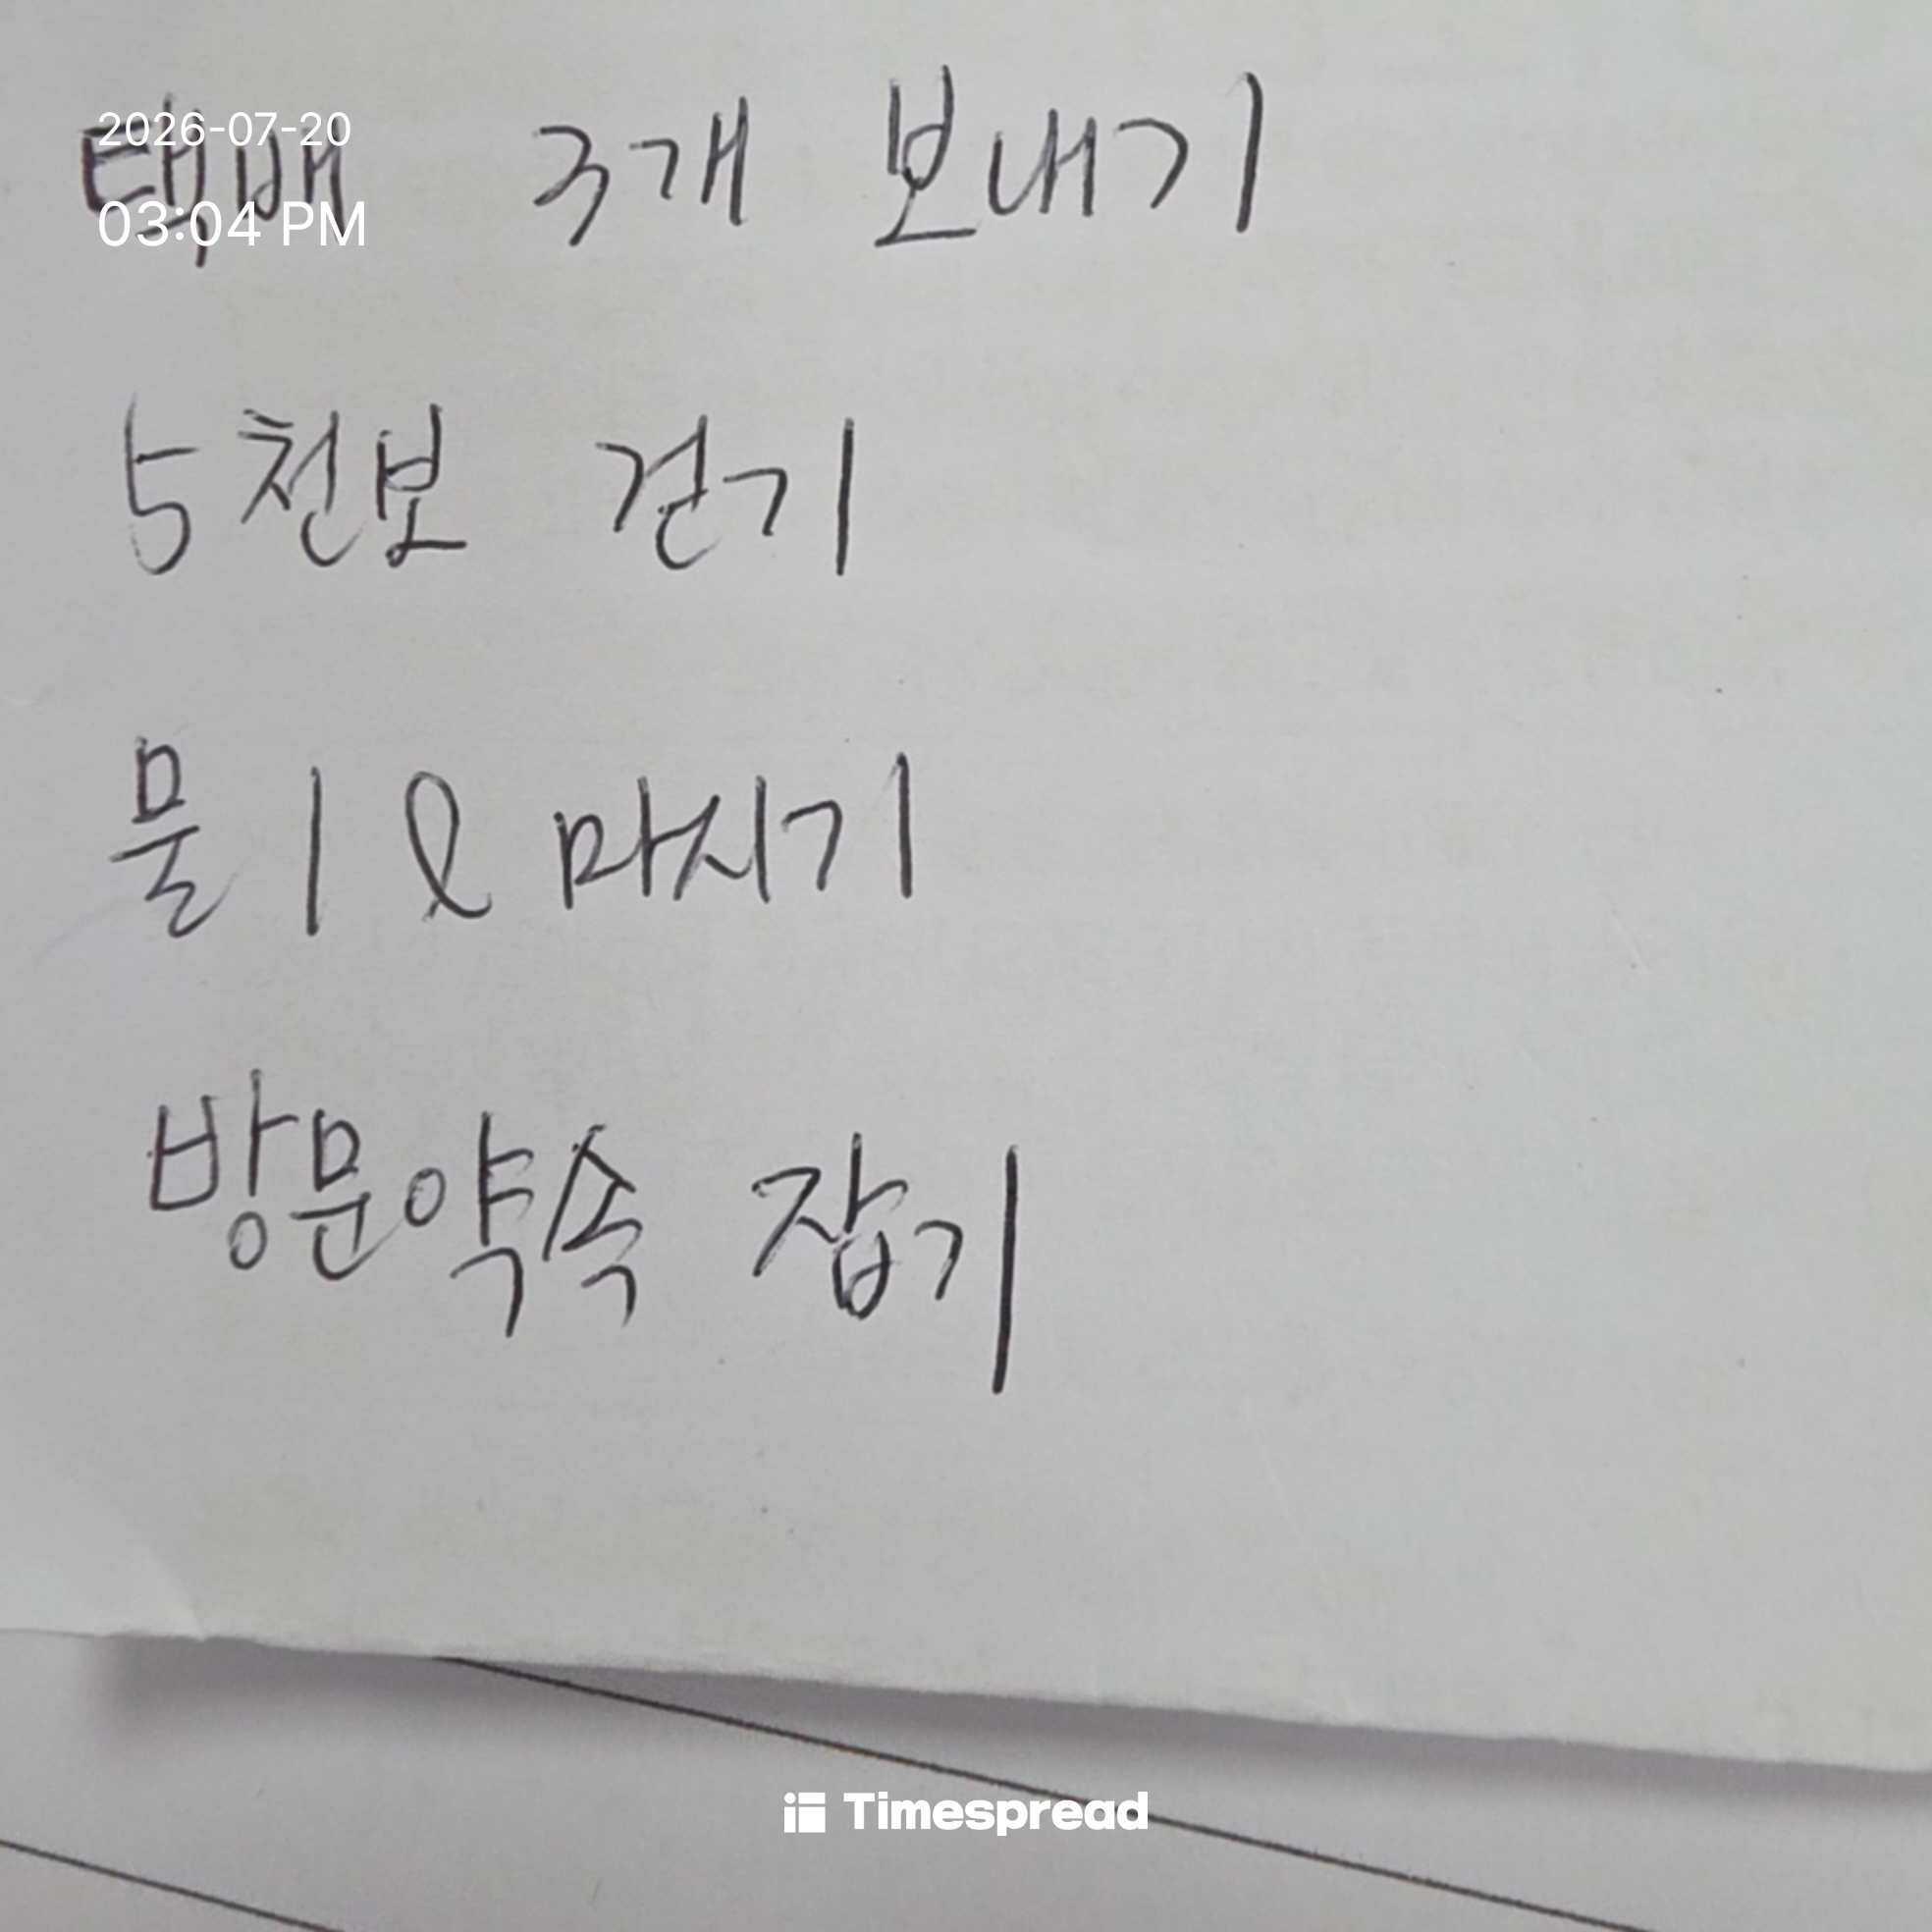 2026-07-20
택배 3개 보내기
03:04 PM
5천보 걷기
물 1ℓ 마시기
방문약속 잡기
Timespread